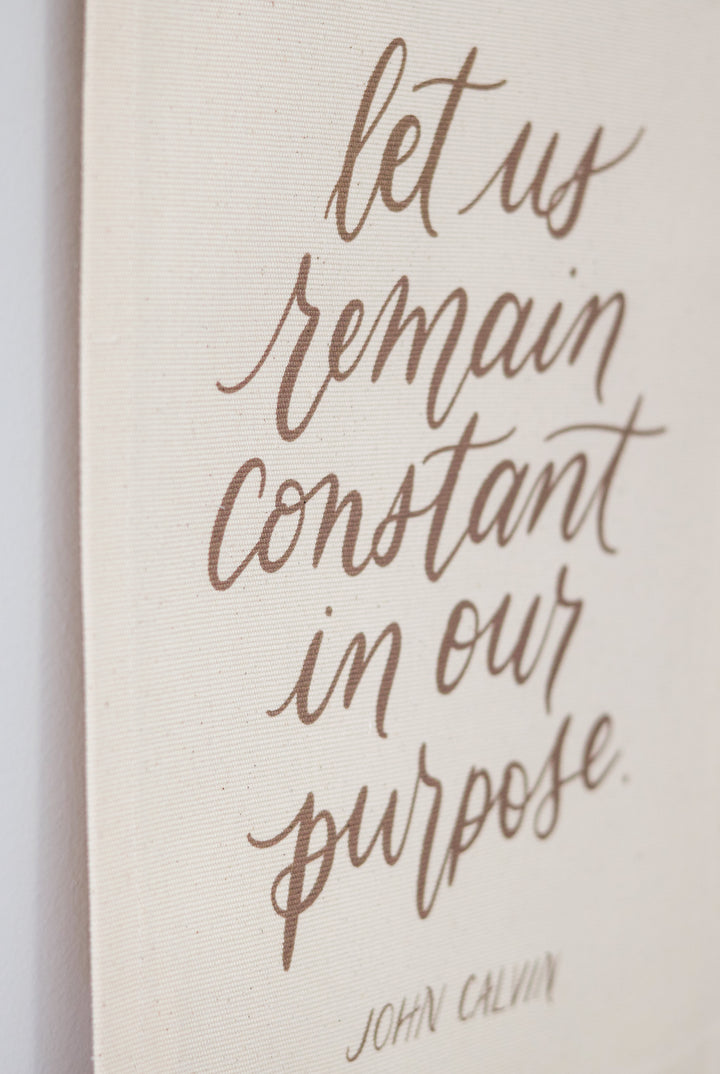 let us
remain
constant
in our
purpose.
JOHN CALVIN